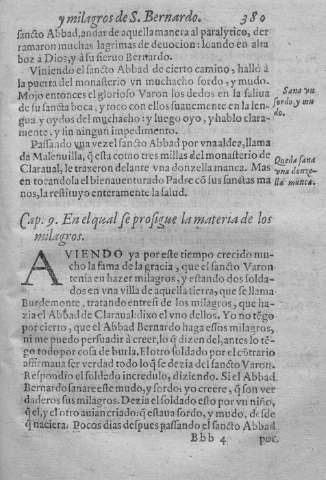 y milagros de S. Bernardo. 380
sancto Abbad, andar de aquella manera al paralytico, der
ramaron muchas lagrimas de deuocion: loando en alta
boz a Dios, y a su sieruo Bernardo.
Viniendo el sancto Abbad de cierto camino, halló à
la puerta del monasterio vn muchacho sordo, y mudo.
Mojo entonces el glorioso Varon los dedos en la saliua
de su sancta boca, y toco con ellos suauemente en la len-
gua, y oydos del muchacho: y luego oyo, y hablo clara-
mente, y sin ningun impedimento.
Sana vn
sordo, y mu
do.
Passando vna vez el sancto Abbad por vna aldez, llama
da Malenuilla, q̃ esta como tres millas del monasterio de
Claraual, le traxeron delante vna donzella manca. Mas
en tocandola el bienauenturado Padre cõ sus sanctas ma
nos, la restituyo enteramente la salud.
Queda sana
vna donze-
lla manca.
Cap. 9. En el qual se prosigue la materia de los
milagros.
AVIENDO ya por este tiempo crecido mu-
cho la fama de la gracia, que el sancto Varon
tenia en hazer milagros, y estando dos solda-
dos en vna villa de aquella tierra, que se llama
Burdemonte, tratando entre si de los milagros, que ha-
zia el Abbad de Claraual: dixo el vno dellos. Yo no tẽgo
por cierto, que el Abbad Bernardo haga essos milagros,
ni me puedo persuadir à creer, lo q̃ dizen del, antes lo tẽ-
go todo por cosa de burla. El otro soldado por el cõtrario
affirmaua ser verdad todo lo q̃ se dezia del sancto Varon.
Respondio el soldado incredulo, diziendo. Si el Abbad
Bernardo sanare este mudo, y sordo: yo creere, q̃ son ver
daderos sus milagros. Dezia el soldado esto por vn niño,
q̃ el, y el otro auian criado: q̃ estaua sordo, y mudo, desde
q̃ naciera. Pocos dias despues passando el sancto Abbad
Bbb 4 por.